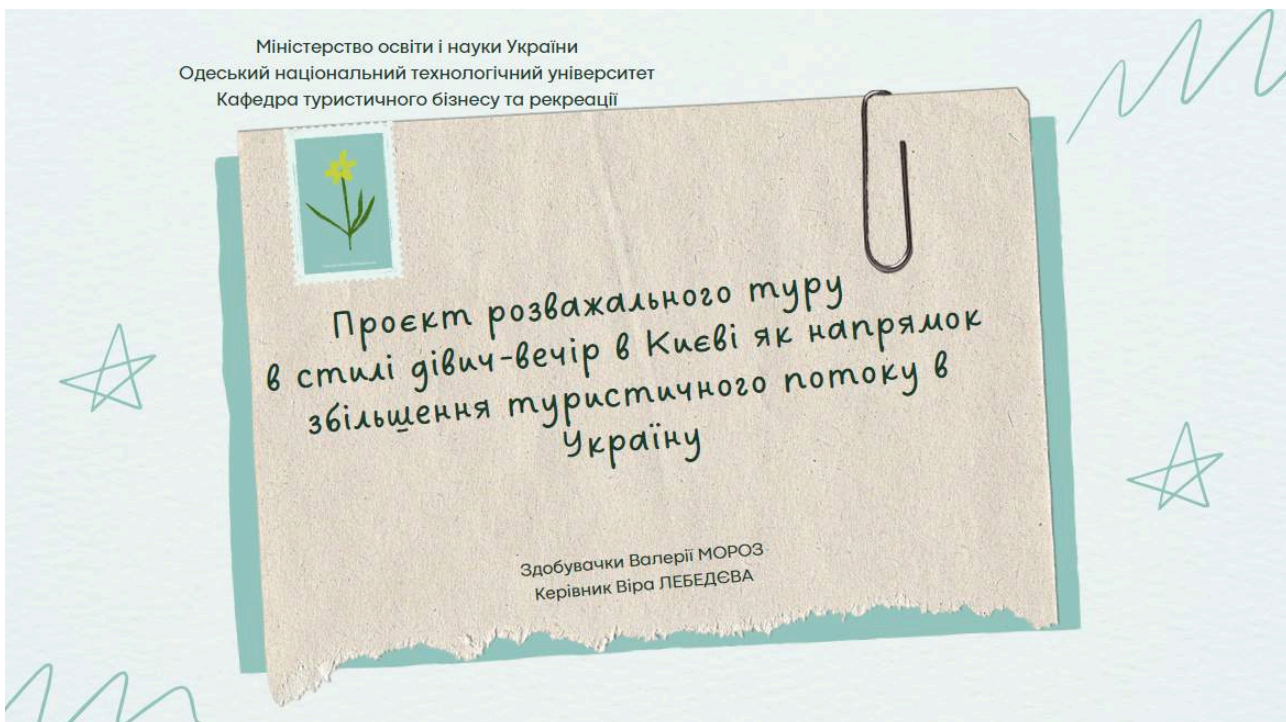 Міністерство освіти і науки України
Одеський національний технологічний університет
Кафедра туристичного бізнесу та рекреації
Проєкт розважального туру
в стилі дівич-вечір в Києві як напрямок
збільшення туристичного потоку в
Україну
Здобувачки Валерії МОРОЗ
Керівник Віра ЛЕБЕДЄВА